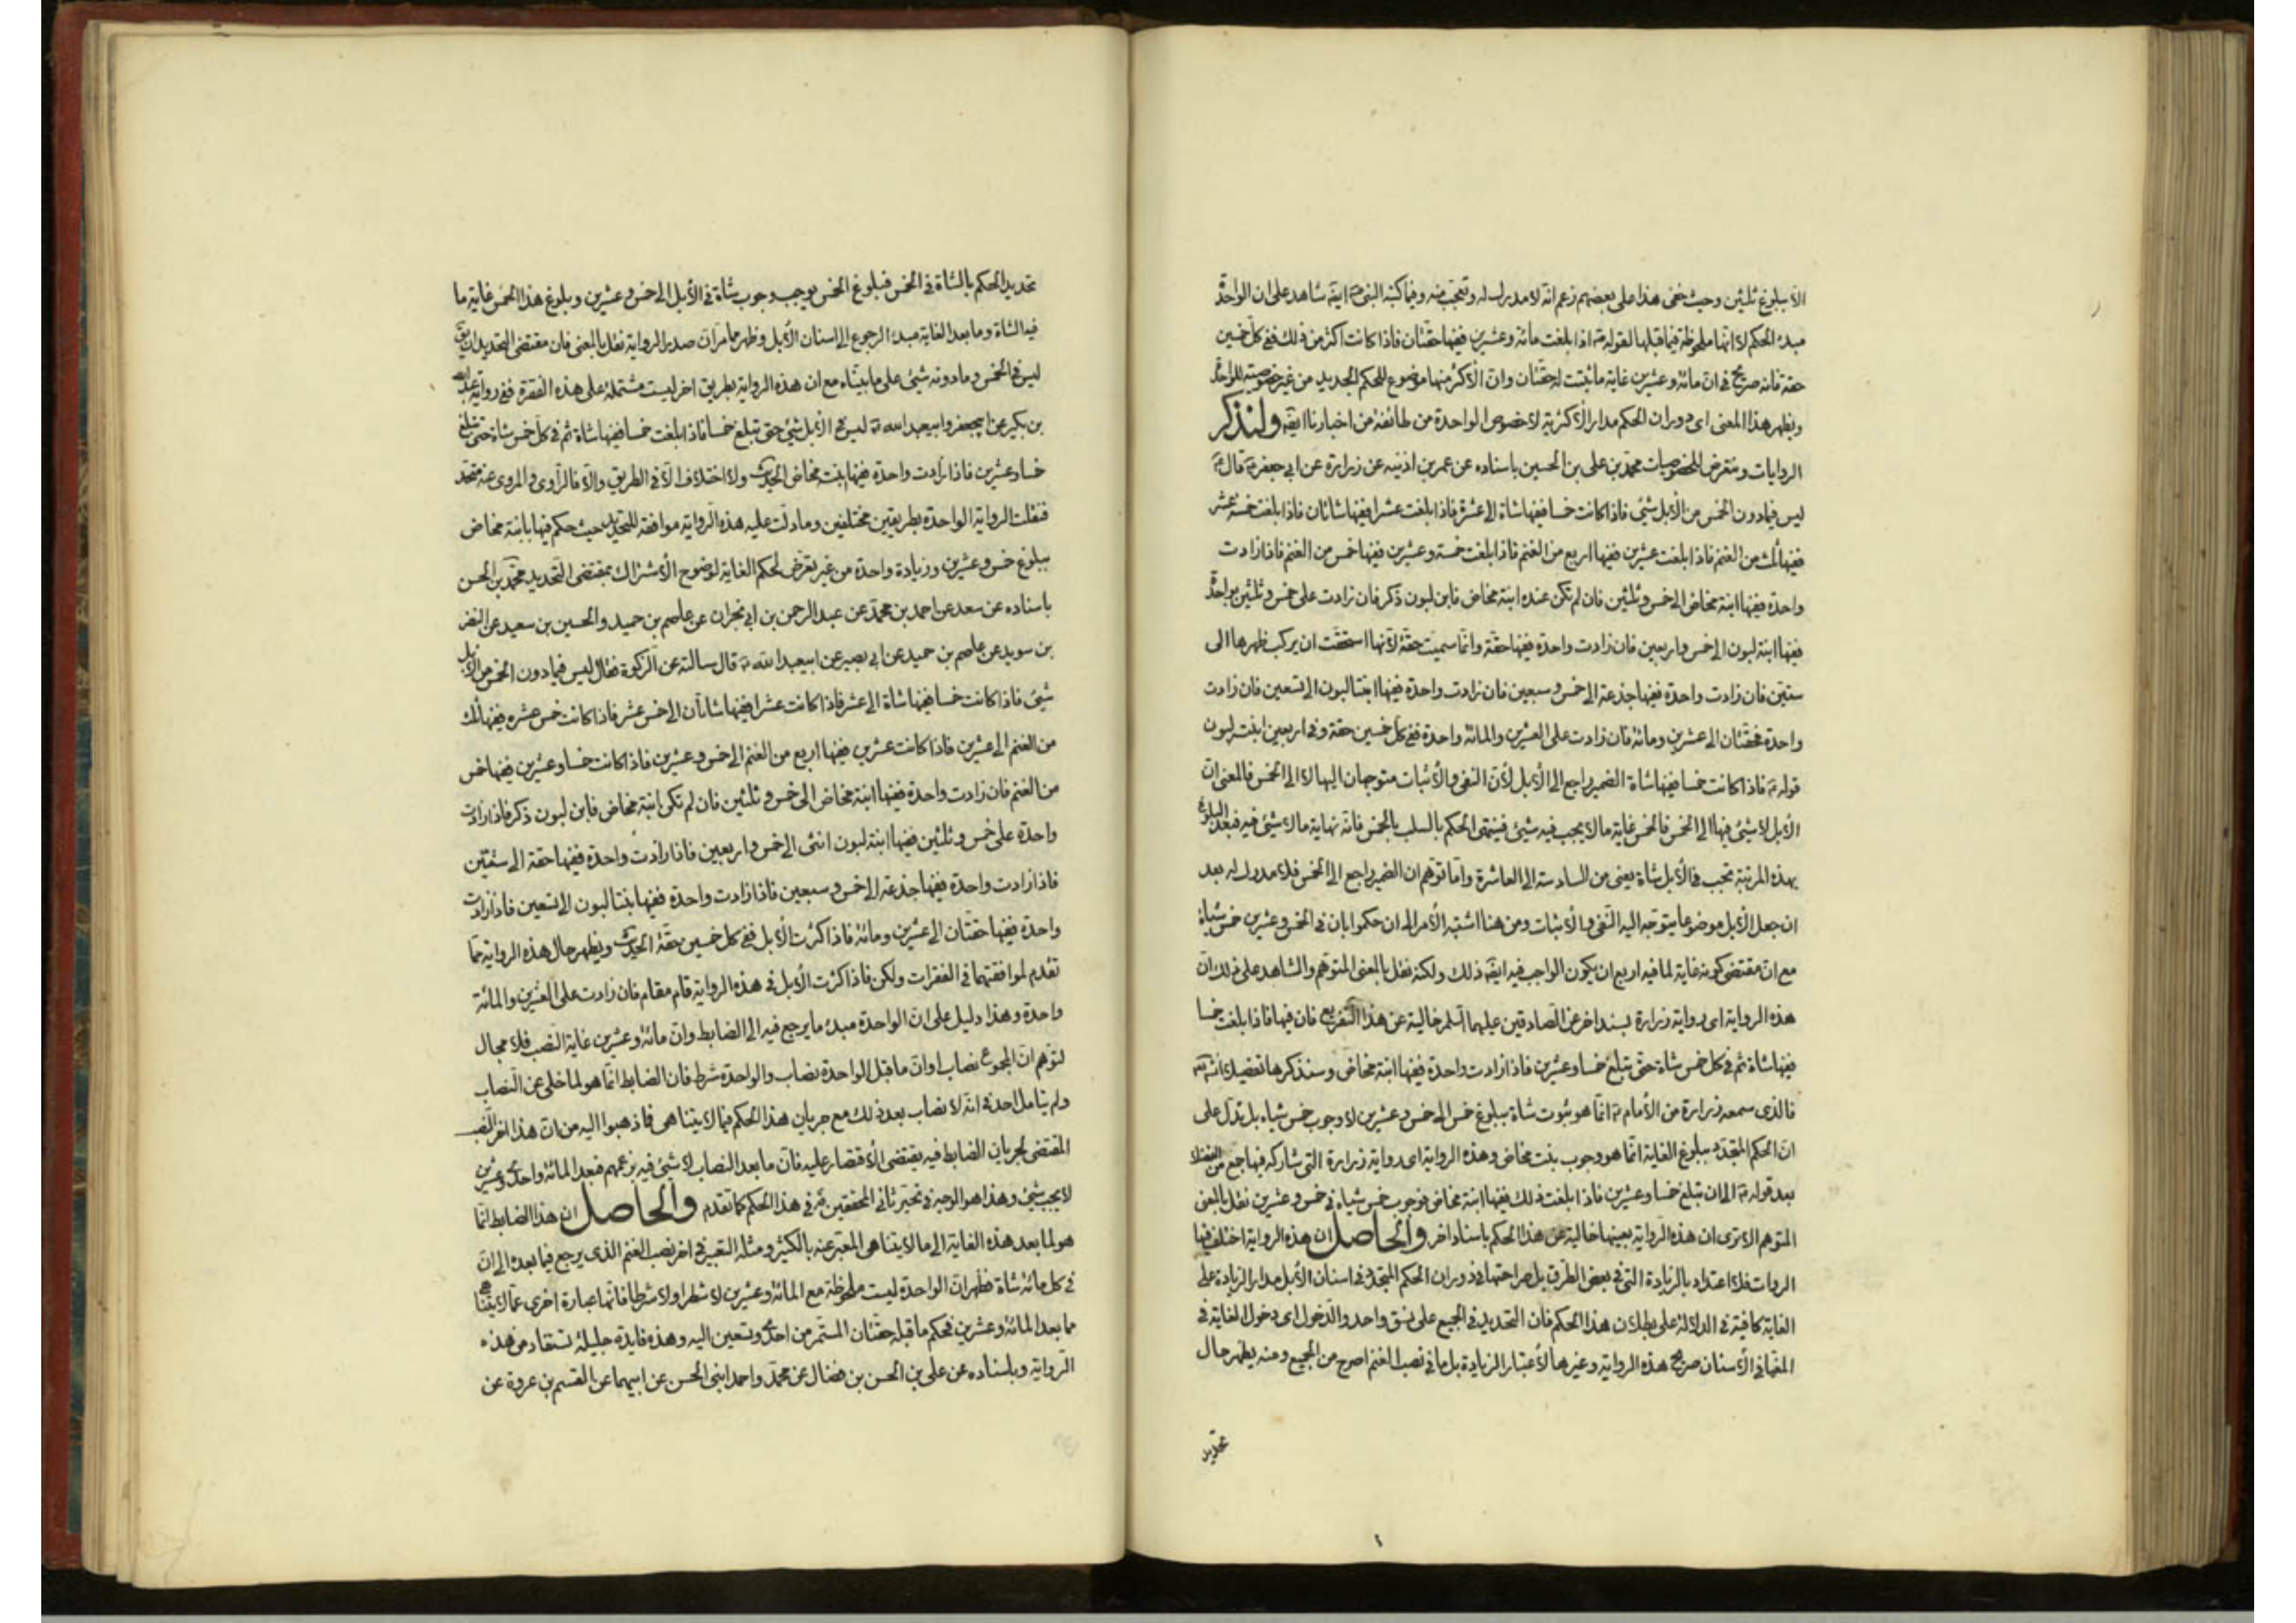 الا ببلوغ ثلثين وحيث خفى هذا على بعضهم زعم انه لا مدرك له وتعجب منه وفيما كتبه النبى ص ايضا شاهد على ان الواحدة
مبدء الحكم لا انها ملحوظة فيما قبلها لقوله ص اذا بلغت مائة وعشرين ففيها حقتان فاذا كانت اكثر من ذلك ففى كل خمسين
حقة فانه صريح فى ان مائة وعشرين غاية ما ثبتت له حقتان وان الاكثر منها موضوع للحكم الجديد من غير خصوصية للواحدة
ويظهر هذا المعنى اى دوران الحكم مدار الاكثرية لا خصوص الواحدة من طائفة من اخبارنا ايضا ولنذكر
الروايات ونتعرض للخصوصيات محمد بن على بن الحسين باسناده عن عمر بن اذينه عن زرارة عن ابى جعفر ع قال
ليس فيما دون الخمس من الابل شئ فاذا كانت خمسا ففيها شاة الى عشرة فاذا بلغت عشرا ففيها شاتان فاذا بلغت خمسة عشر
ففيها ثلث من الغنم فاذا بلغت عشرين ففيها اربع من الغنم فاذا بلغت خمسة وعشرين ففيها خمس من الغنم فاذا زادت
واحدة ففيها ابنة مخاض الى خمس وثلثين فان لم تكن عنده ابنة مخاض فابن لبون ذكر فان زادت على خمس وثلثين بواحدة
ففيها ابنة لبون الى خمس واربعين فان زادت واحدة ففيها حقة وانما سميت حقة لانها استحقت ان يركب ظهرها الى
ستين فان زادت واحدة ففيها جذعة الى خمس وسبعين فان زادت واحدة ففيها ابنتا لبون الى تسعين فان زادت
واحدة فحقتان الى عشرين ومائة فان زادت على العشرين والمائة واحدة ففى كل خمسين حقة وفى اربعين ابنت لبون
قوله ع فاذا كانت خمسا ففيها شاة الضمير راجع الى الابل لان النفى والاثبات متوجهان اليها لا الى الخمس فالمعنى ان
الابل لا شئ فيها الى الخمس فالخمس غاية ما لا يجب فيه شئ فينتهى الحكم بالسلب بالخمس فانه نهاية ما لا شئ فيه فبعد البلوغ
بهذه المرتبة تجب فى الابل شاة يعنى من السادسة الى العاشرة واما توهم ان الضمير راجع الى الخمس فلا مدرك له بعد
ان جعل الابل موضوعا يتوجه اليه النفى والاثبات ومن هنا اشتبه الامر الى ان حكموا بان فى الخمس وعشرين خمس شياة
مع ان مقتضى كونه غاية لما فيه اربع ان يكون الواجب فيه ايضا ذلك ولكنه نقل بالمعنى المتوهم والشاهد على ذلك ان
هذه الرواية اى رواية زرارة بسند اخر عن الصادقين عليهما السلم خالية عن هذا التفريع فان فيها فاذا بلغت خمسا
ففيها شاة ثم فى كل خمس شاة حتى تبلغ خمسا وعشرين فاذا زادت واحدة ففيها ابنة مخاض وسنذكرها تفصيلا
فالذى سمعه زرارة من الامام ع انما هو ثبوت شاة ببلوغ خمس الى خمس وعشرين لا وجوب خمس شياه بل تدل على
ان الحكم المتجدد ببلوغ الغاية انما هو وجوب بنت مخاض وهذه الرواية اى رواية زرارة التى شاركه فيها جمع من الفضلاء
بعد قوله ع الى ان تبلغ خمسا وعشرين فاذا بلغت ذلك ففيها ابنة مخاض فوجوب خمس شياه فى خمس وعشرين نقل بالمعنى
المتوهم الا ترى ان هذه الرواية بعينها خالية عن هذا الحكم باسناد اخر والحاصل ان هذه الرواية اختلف فيها
الروات فلا اعتداد بالزيادة التى فى بعض الطرق بل صراحتها فى دوران الحكم المتجدد فى اسنان الابل مدار الزيادة على
الغاية كافية فى الدلالة على بطلان هذا الحكم فان التحديد فى الجميع على نسق واحد والدخول اى دخول الغاية فى
المغيا فى الاسنان صريح هذه الرواية وغيرها لاعتبار الزيادة بل ما فى نصب الغنم اصرح من الجميع ومنه يظهر حال
تحديد
تحديد الحكم بالشاة فى الخمس فبلوغ الخمس يوجب وجوب شاة فى الابل الى خمس وعشرين وبلوغ هذا الخمس غاية ما
فيه الشاة وما بعد الغاية مبدء الرجوع الى اسنان الابل وظهر مما مر ان صدر الرواية نقل بالمعنى فان مقتضى التحديد ان يق
ليس فى الخمس وما دونه شئ على ما بيناه مع ان هذه الرواية بطريق اخر ليست مشتملة على هذه الفقرة ففى رواية عبد الله
بن بكير عن ابيجعفر وابيعبد الله ع ليس فى الابل شئ حتى تبلغ خمسا فاذا بلغت خمسا ففيها شاة ثم فى كل خمس شاة حتى تبلغ
خمسا وعشرين فاذا زادت واحدة ففيها ابنت مخاض الحديث ولا اختلاف الا فى الطريق والا فالراوى والمروى عنه متحد
فنقلت الرواية الواحدة بطريقين مختلفين وما دلت عليه هذه الرواية موافقة للتحديد حيث حكم فيها بابنة مخاض
ببلوغ خمس وعشرين وزيادة واحدة من غير تعرض لحكم الغاية لوضوح الاشتراك بمقتضى التحديد محمد بن الحسن
باسناده عن سعد عن احمد بن محمد عن عبد الرحمن بن ابى نجران عن عاصم بن حميد والحسين بن سعيد عن النضر
بن سويد عن عاصم بن حميد عن ابى بصير عن ابيعبد الله ع قال سالته عن الزكوة فقال ليس فيما دون الخمس من الابل
شئ فاذا كانت خمسا ففيها شاة الى عشر فاذا كانت عشرا ففيها شاتان الى خمس عشر فاذا كانت خمس عشره ففيها ثلث
من الغنم الى عشرين فاذا كانت عشرين ففيها اربع من الغنم الى خمس وعشرين فاذا كانت خمسا وعشرين ففيها خمس
من الغنم فان زادت واحدة ففيها ابنة مخاض الى خمس وثلثين فان لم تكن ابنة مخاض فابن لبون ذكر فاذا زادت
واحدة على خمس وثلثين ففيها ابنة لبون انثى الى خمس واربعين فاذا زادت واحدة ففيها حقة الى ستين
فاذا زادت واحدة ففيها جذعة الى خمس وسبعين فاذا زادت واحدة ففيها بنتا لبون الى تسعين فاذا زادت
واحدة ففيها حقتان الى عشرين ومائة فاذا كثرت الابل ففى كل خمسين حقة الحديث ويظهر حال هذه الرواية مما
تقدم لموافقتهما فى الفقرات ولكن فاذا كثرت الابل فى هذه الرواية قام مقام فان زادت على العشرين والمائة
واحدة وهذا دليل على ان الواحدة مبدء ما يرجع فيه الى الضابط وان مائة وعشرين غاية النصب فلا مجال
لتوهم ان المجموع نصاب او ان ما قبل الواحدة نصاب والواحدة شرط فان الضابط انما هو لما خلى عن النصاب
ولم يتامل احد فى انه لا نصاب بعد ذلك مع جريان هذا الحكم فيما لا يتناهى فاذهبوا اليه من ان هذا اخر النصب
المقتضى لجريان الضابط فيه يقتضى الاقتصار عليه فان ما بعد النصاب لا شئ فيه بزعمهم فبعد المائة واحدى وعشرين
لا يجب شئ وهذا هو الوجه فى تحير ثانى المحققين قه فى هذا الحكم كما تقدم والحاصل ان هذا الضابط انما
هو لما بعد هذه الغاية الى ما لا يتناهى المعبر عنه بالكثير ومثله التعبير فى اخر نصب الغنم الذى يرجع فيما بعده الى ان
فى كل مائة شاة فظهر ان الواحدة ليست ملحوظة مع المائة وعشرين لا شطرا ولا شرطا فانها عبارة اخرى عما لا يتناهى
مما بعد المائة وعشرين فحكم ما قبله حقتان المستمر من احدى وتسعين اليه وهذه فايدة جليلة تستفاد من هذه
الرواية وباسناده عن على بن الحسن بن فضال عن محمد واحمد ابنى الحسن عن ابيهما عن القسم بن عروة عن